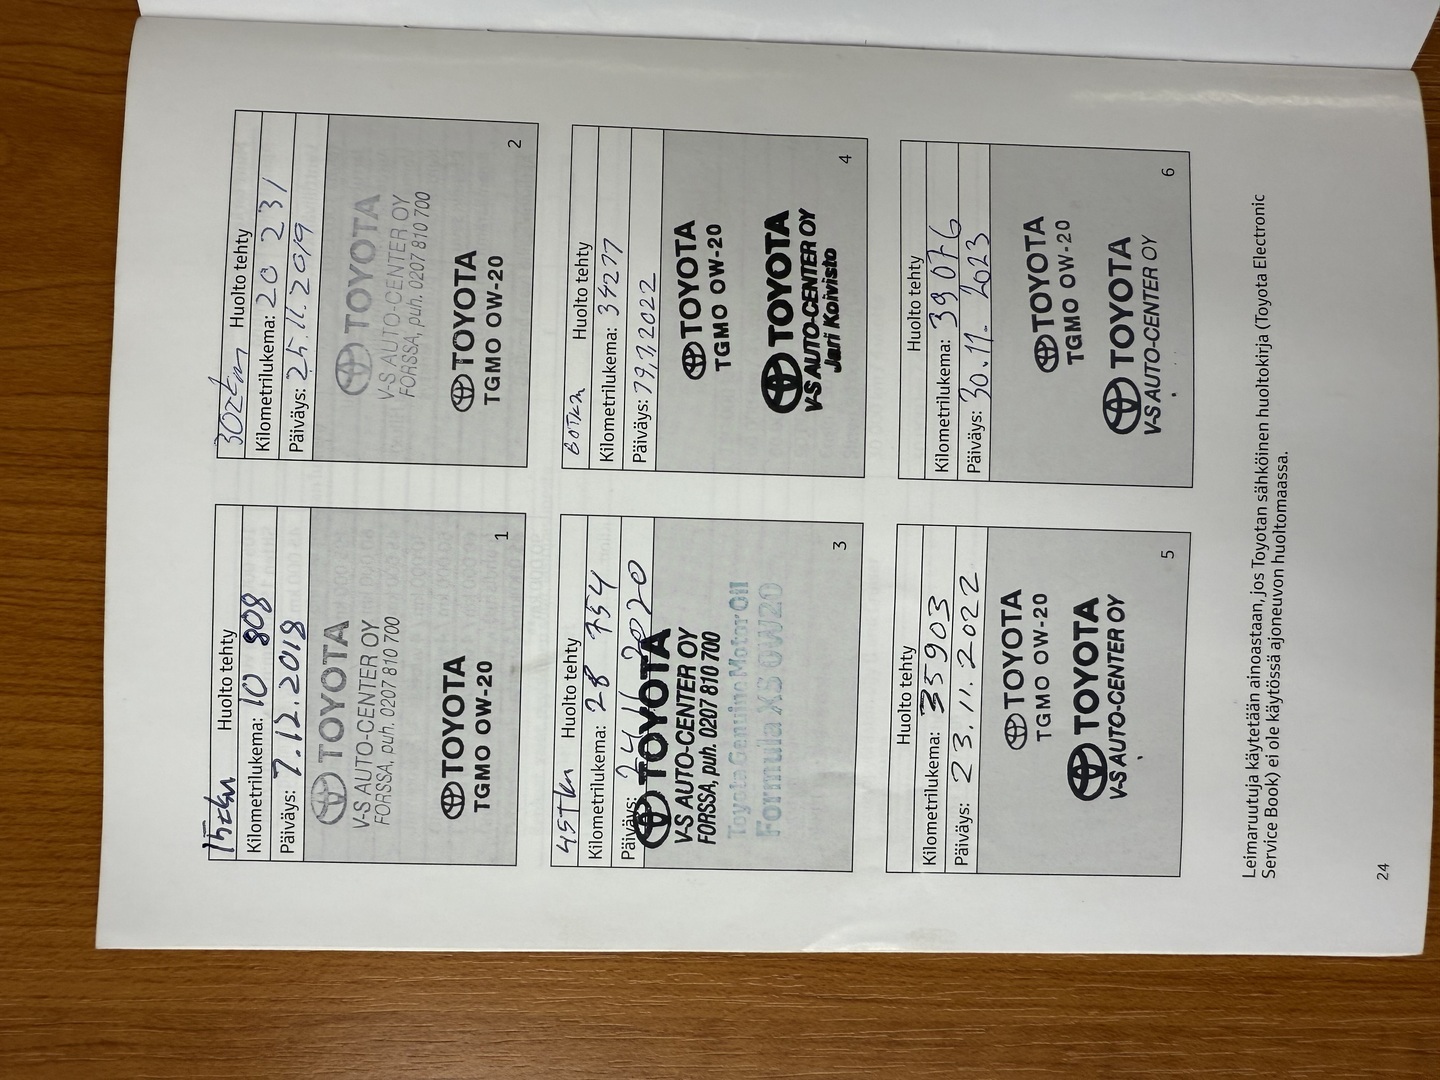 15tkm Huolto tehty
Kilometrilukema: 10 808
Päiväys: 7.12.2018
TOYOTA
V-S AUTO-CENTER OY
FORSSA, puh. 0207 810 700
TOYOTA
TGMO OW-20
1
30tkm Huolto tehty
Kilometrilukema: 20 231
Päiväys: 25.11.2019
TOYOTA
V-S AUTO-CENTER OY
FORSSA, puh. 0207 810 700
TOYOTA
TGMO OW-20
2
45tkm Huolto tehty
Kilometrilukema: 28 754
Päiväys: 2020
TOYOTA
V-S AUTO-CENTER OY
FORSSA, puh. 0207 810 700
Toyota Genuine Motor Oil
Formula XS 0W20
3
60tkm Huolto tehty
Kilometrilukema: 34277
Päiväys: 19.7.2022
TOYOTA
TGMO OW-20
TOYOTA
V-S AUTO-CENTER OY
Jari Koivisto
4
Huolto tehty
Kilometrilukema: 35903
Päiväys: 23.11.2022
TOYOTA
TGMO OW-20
TOYOTA
V-S AUTO-CENTER OY
5
Huolto tehty
Kilometrilukema: 39 076
Päiväys: 30.11.2023
TOYOTA
TGMO OW-20
TOYOTA
V-S AUTO-CENTER OY
6
Leimaruutuja käytetään ainoastaan, jos Toyotan sähköinen huoltokirja (Toyota Electronic
Service Book) ei ole käytössä ajoneuvon huoltomaassa.
24